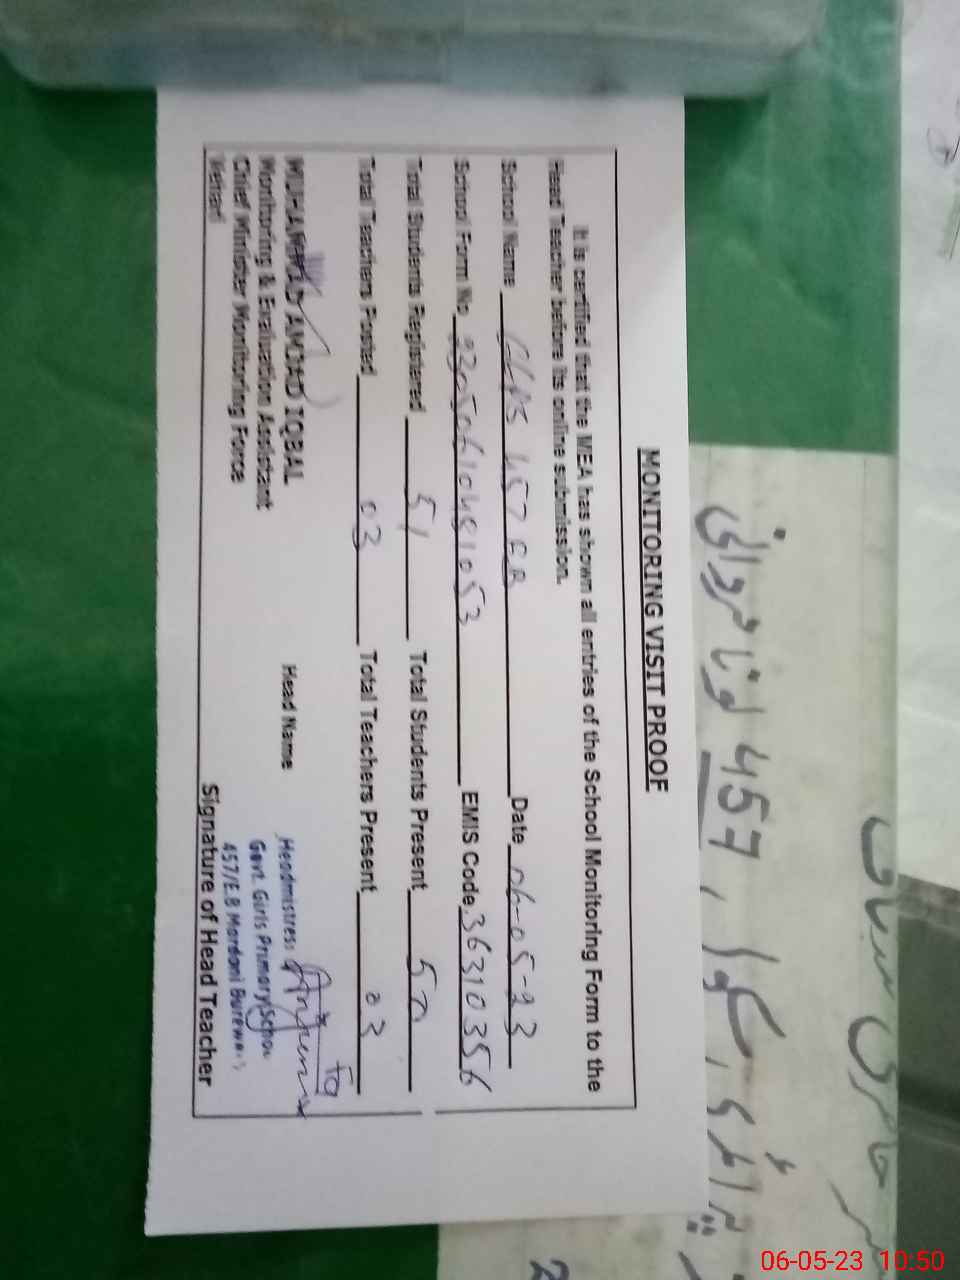 MONITORING VISIT PROOF
It is certified that the MEA has shown all entries of the School Monitoring Form to the
Head Teacher before its online submission.
School Name GGPS 457 EB Date 06-05-23
School Form No 23050610481053 EMIS Code 36310356
Total Students Registered 51 Total Students Present 50
Total Teachers Posted 03 Total Teachers Present 03
MUHAMMAD AMJAD IQBAL Head Name
Monitoring & Evaluation Assistant
Chief Minister Monitoring Force
Vehari
Headmistress Anjum
Govt. Girls Primary School
457/E.B Mardani Burewala
Signature of Head Teacher
457
06-05-23 10:50